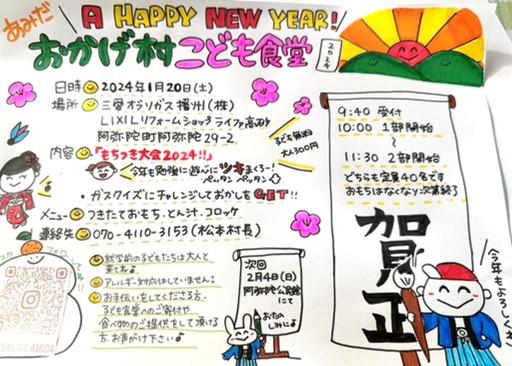 あみだ
A HAPPY NEW YEAR!
おかげ村こども食堂
2024
日時 2024年1月20日(土)
場所 三愛オブリガス播州(株)
LIXILリフォームショップライファ高砂
阿弥陀町阿弥陀29-2
子ども無料
大人300円
内容 「もちつき大会2024!!」
今年も勉強に遊びにツキまくろー!
ペッタン ペッタン
・ガスクイズにチャレンジしておかしをGET!!
メニュー つきたておもち、とん汁、コロッケ
連絡先 070-4110-3153(松本村長)
就学前の子どもたちは大人と
来てね
アレルギー対応はしていません。
お手伝いをしてくださる方、
子ども食堂へのご寄付や
食べ物のご提供をして頂ける
方、お声がけ下さい
次回
2月4日(日)
阿弥陀公民館
にて
おたの
しみに
9:40 受付
10:00 1部開始
〜
11:30 2部開始
どちらも定員40名です
おもちはなくなり次第終了
賀正
今年もよろしくネ